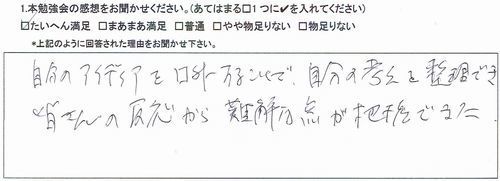 1.本勉強会の感想をお聞かせください。(あてはまる□1つに✔を入れてください)
☑たいへん満足 □まあまあ満足 □普通 □やや物足りない □物足りない
*上記のように回答された理由をお聞かせ下さい。
自分のアイディアを口外することで、自分の考えを整理でき
皆さんの反応から難解な点が把握できた。